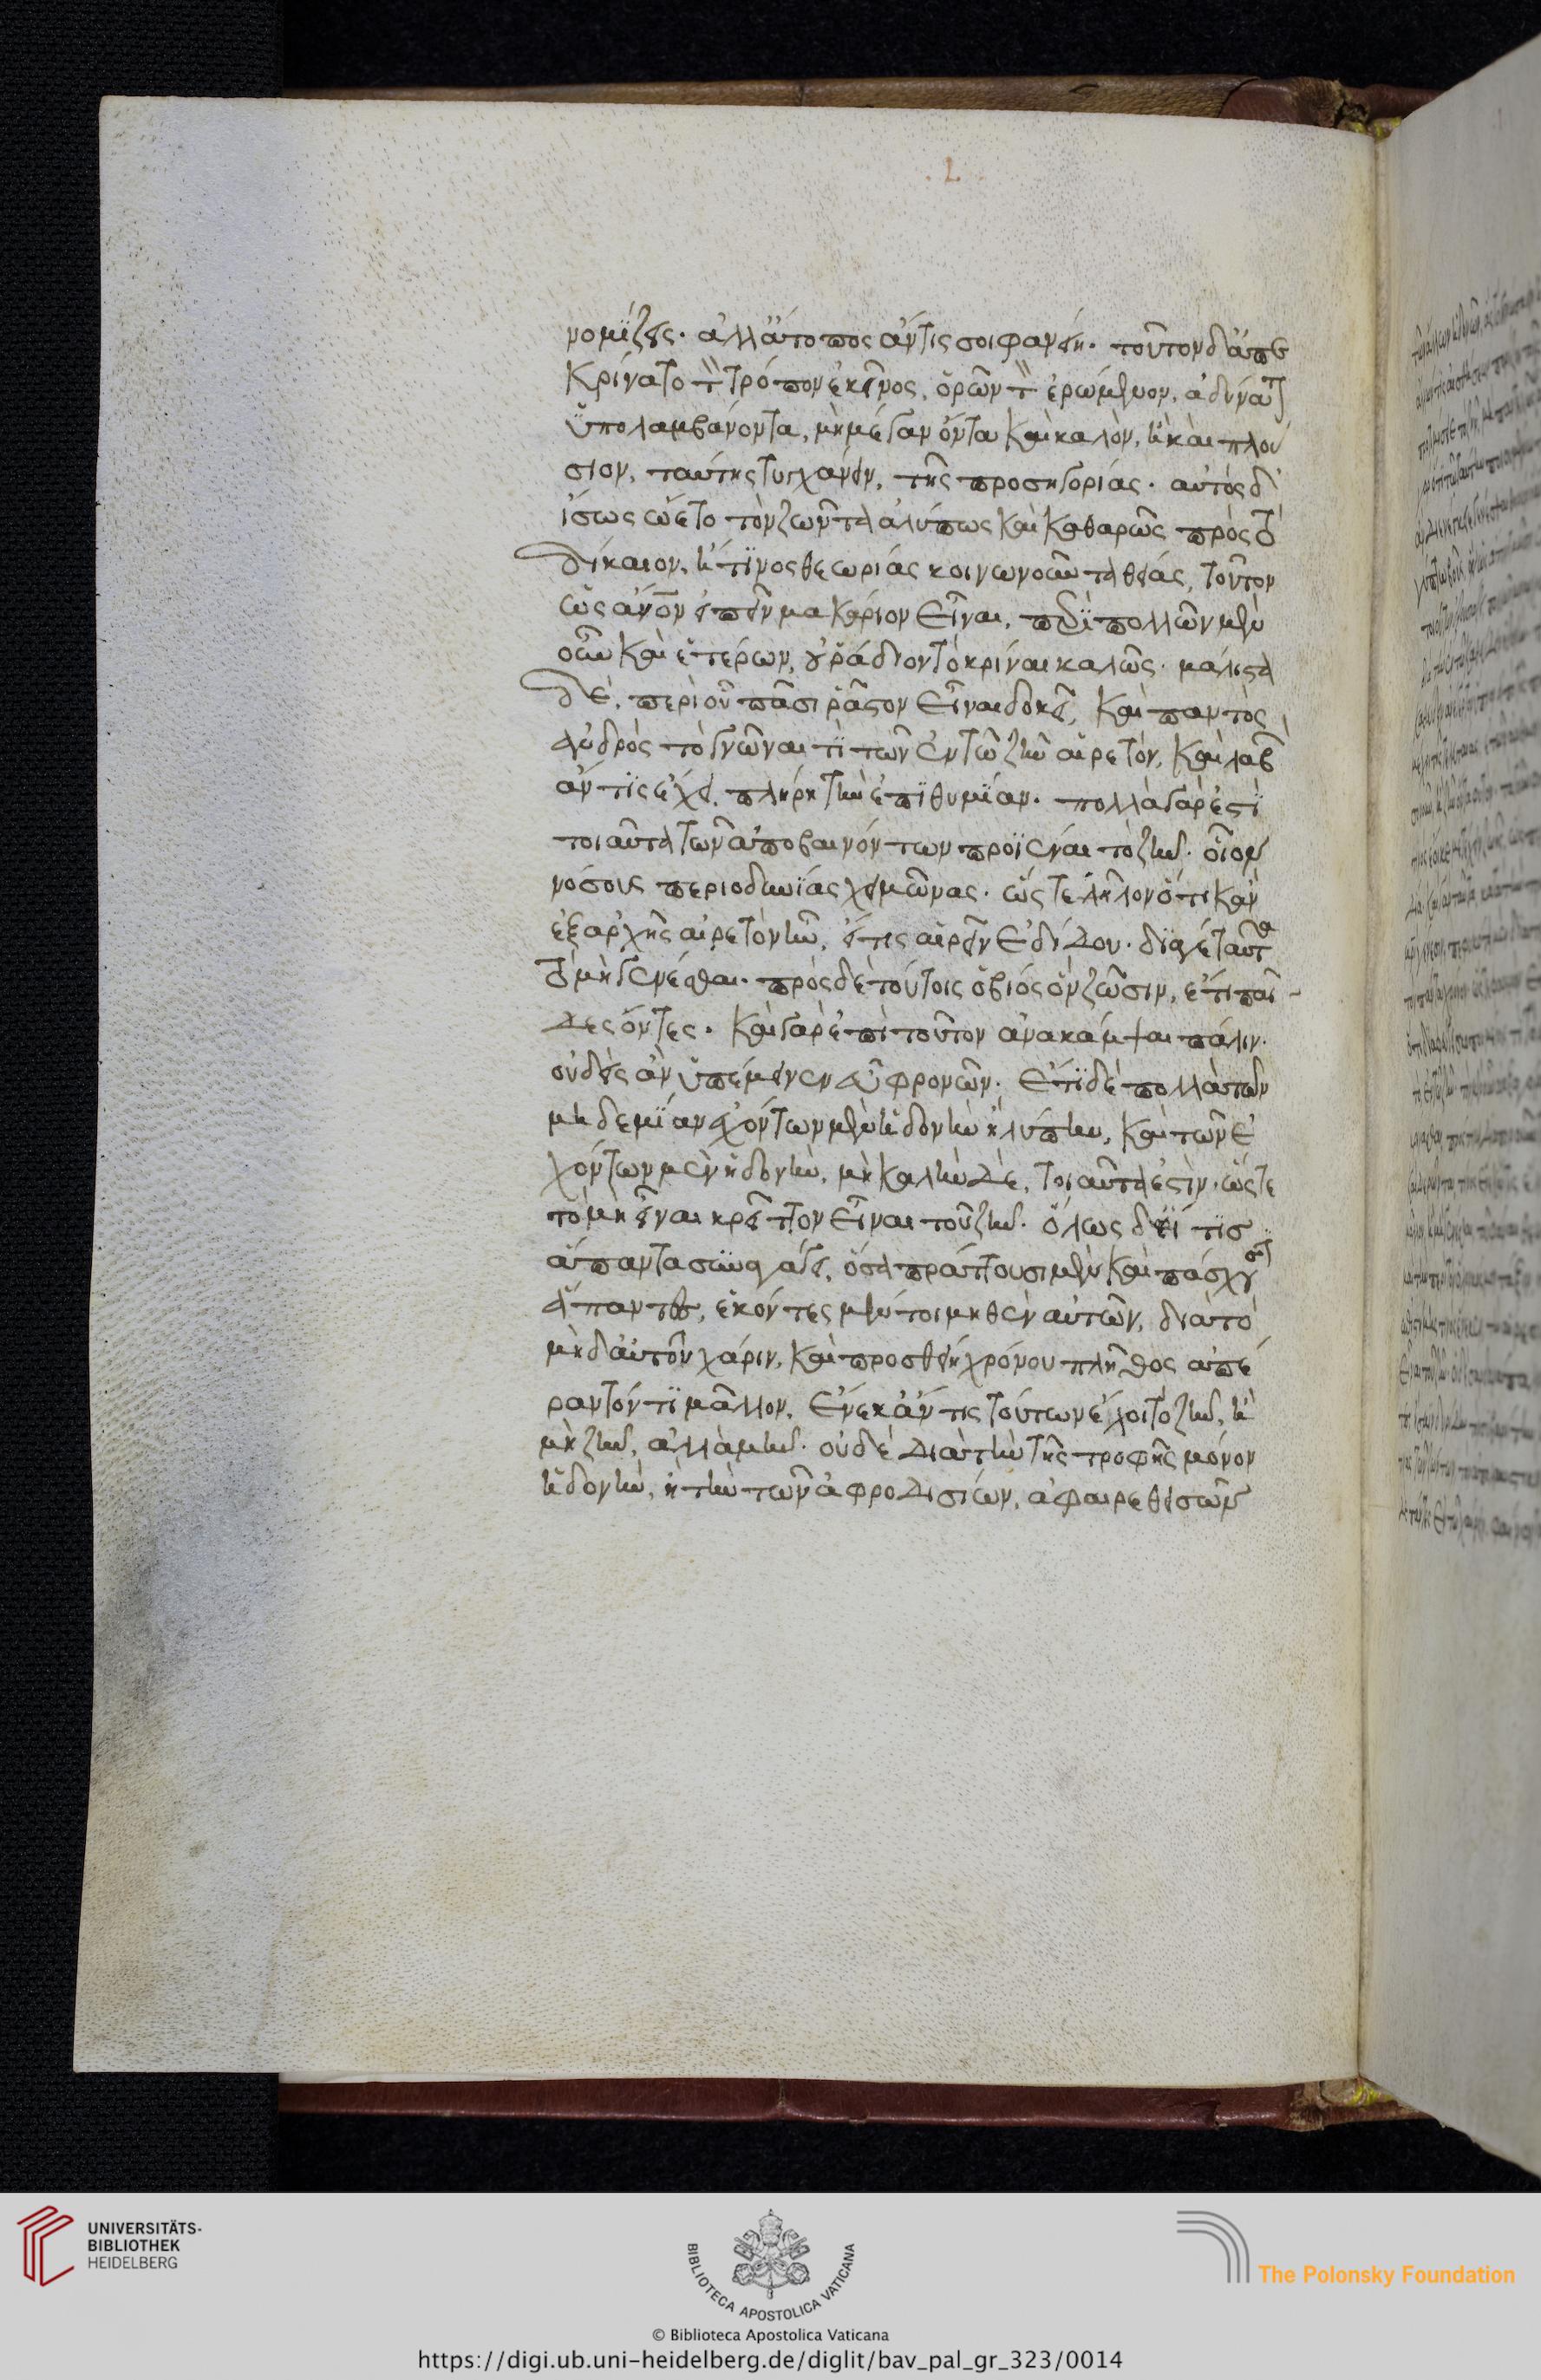 νομίζεις· ἀλλ' ἄτοπος ἄν τίς σοι φανείη· τοῦτον δ' ἀπε
κρίνατο τὸν τρόπον ἐκεῖνος, ὁρῶν τὸν ἐρώμενον, ἀδύνατ
ὑπολαμβάνοντα, μὴ μέγαν ὄντα καὶ καλὸν, ἢ καὶ πλού
σιον, ταύτης τυγχάνειν, τῆς προσηγορίας· αὐτὸς δ'
ἴσως ᾤετο τὸν ζῶντα ἀλύπως καὶ καθαρῶς πρὸς τὸ
δίκαιον, ἤ τινος θεωρίας κοινωνοῦντα θείας, τοῦτον
ὡς ἄνον εἰπεῖν μακάριον εἶναι, περὶ πολλῶν μὲν
οὖν καὶ ἑτέρων, οὐ ῥάδιον τὸ κρῖναι καλῶς· μάλιστα
δὲ, περὶ οὗ πᾶσι ῥᾷστον εἶναι δοκεῖ, καὶ παντὸς
ἀνδρὸς τὸ γνῶναι τί τῶν ἐν τῷ ζῆν αἱρετόν, καὶ λαβ
ἄν τις ἔχει, πλήρη τὴν ἐπιθυμίαν· πολλὰ γάρ ἐστι
τοιαῦτα τῶν ἀποβαινόντων προϊέναι τὸ ζῆν· οἷον
νόσους περιοδυνίας χειμῶνας· ὥστε δῆλον ὅτι κἂν
ἐξ ἀρχῆς αἱρετὸν ἦν, εἴ τις αἵρεσιν ἐδίδου· διά γε ταῦτα
τὸ μὴ γενέσθαι· πρὸς δὲ τούτοις ὁ βίος ὃν ζῶσιν, ἔτι παῖ-
δες ὄντες· καὶ γὰρ ἐπὶ τοῦτον ἀνακάμψαι πάλιν·
οὐδεὶς ἂν ὑπέμεινεν εὖ φρονῶν· ἔτι δὲ πολλὰ τῶν
μηδεμίαν ἐχόντων μὲν ἡδονὴν ἢ λύπην, καὶ τῶν ἐ
χόντων μὲν ἡδονὴν, μὴ καλὴν δὲ, τοιαῦτά ἐστιν· ὥστε
τὸ μὴ εἶναι κρεῖττον εἶναι τοῦ ζῆν· ὅλως δ' εἴ τις
ἅπαντα συναγάγοι, ὅσα πράττουσι μὲν καὶ πάσχουσιν
ἅπαντες, ἑκόντες μέντοι μηθὲν αὐτῶν, διὰ τὸ
μὴ δ' αὐτῶν χάριν, καὶ προσθείη χρόνου πλῆθος ἀπέ
ραντόν τι μᾶλλον, ἕνεκ' ἄν τις τούτων ἕλοιτο ζῆν, ἢ
μὴ ζῆν, ἀλλὰ μὴν· οὐδὲ διὰ τὴν τῆς τροφῆς μόνον
ἡδονὴν, ἢ τὴν τῶν ἀφροδισίων, ἀφαιρεθεισῶν
UNIVERSITÄTS-
BIBLIOTHEK
HEIDELBERG
BIBLIOTECA APOSTOLICA VATICANA
The Polonsky Foundation
© Biblioteca Apostolica Vaticana
https://digi.ub.uni-heidelberg.de/diglit/bav_pal_gr_323/0014